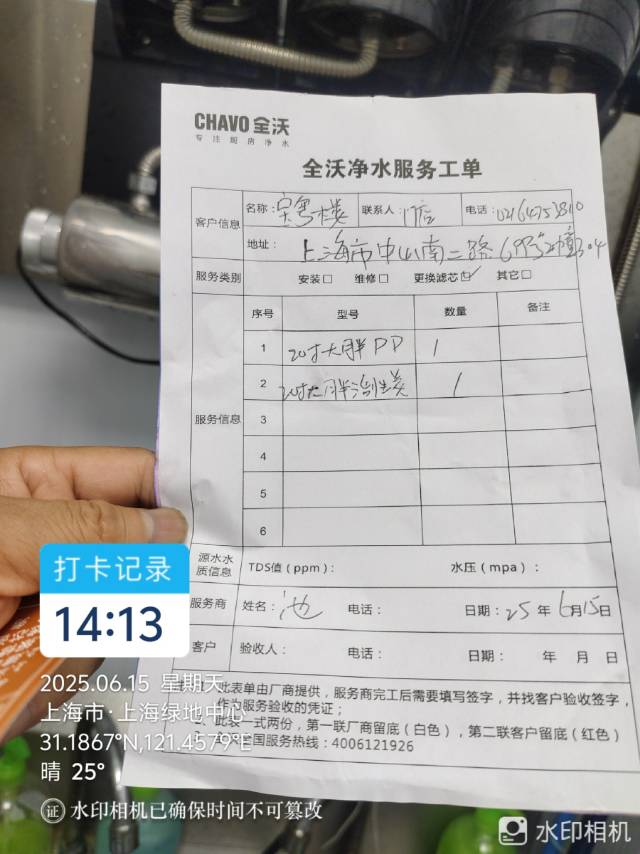 CHAVO 全沃
专注厨房净水
全沃净水服务工单
客户信息 名称: 粤楼 联系人: 门店 电话: 02164753810
地址: 上海市中山南二路
服务类别 安装□ 维修□ 更换滤芯☑ 其它□
服务信息 序号 型号 数量 备注
1 20寸大胖PP 1
2 20寸大胖 1
3
4
5
6
源水水质信息 TDS值(ppm): 水压(mpa):
服务商 姓名: 池 电话: 日期: 25 年 6月15日
客户 验收人: 电话: 日期: 年 月 日
此表单由厂商提供，服务商完工后需要填写签字，并找客户验收签字，
作为服务验收的凭证；
此表一式两份，第一联厂商留底(白色)，第二联客户留底(红色)
国服务热线: 4006121926
打卡记录
14:13
2025.06.15 星期天
上海市·上海绿地中心
31.1867°N,121.4579°E
晴 25°
证 水印相机已确保时间不可篡改
水印相机